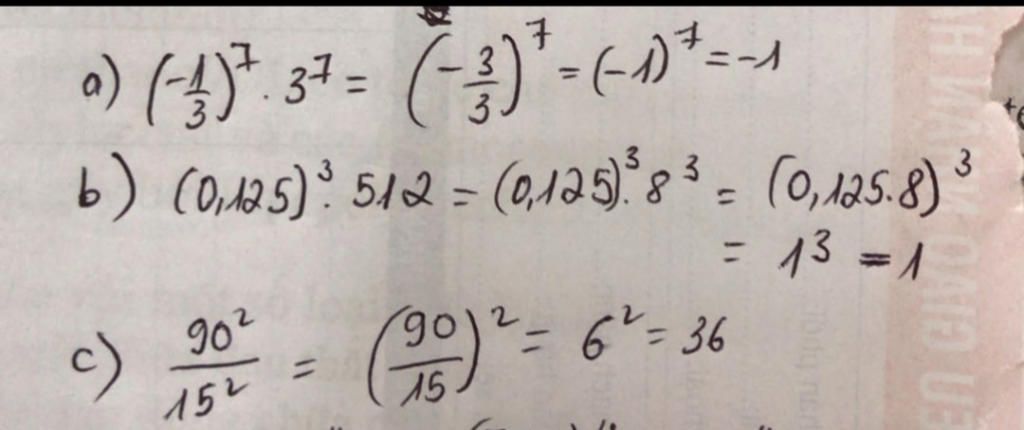 a) (-1/3)^7 . 3^7 = (-3/3)^7 = (-1)^7 = -1
b) (0,125)^3 . 512 = (0,125)^3 . 8^3 = (0,125.8)^3
= 1^3 = 1
c) 90^2/15^2 = (90/15)^2 = 6^2 = 36